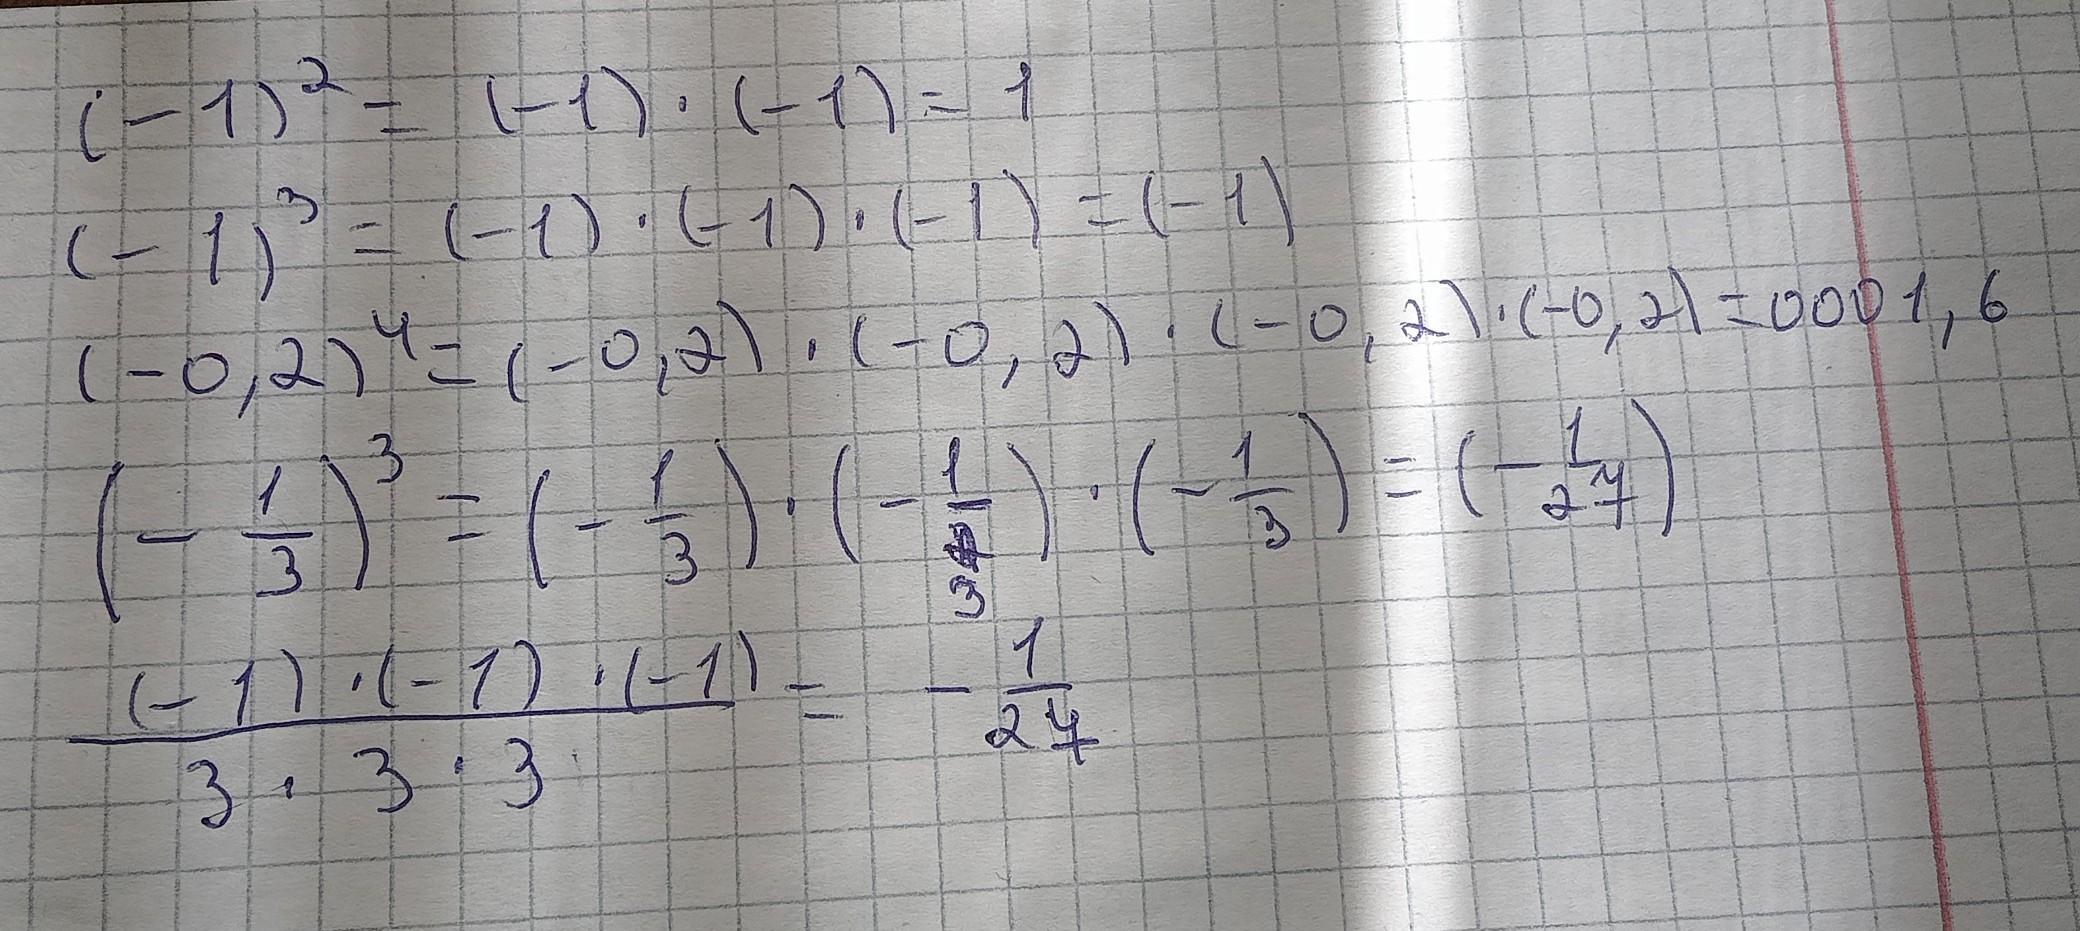 (-1)² = (-1) · (-1) = 1
(-1)³ = (-1) · (-1) · (-1) = (-1)
(-0,2)⁴ = (-0,2) · (-0,2) · (-0,2) · (-0,2) = 0001,6
(-1/3)³ = (-1/3) · (-1/3) · (-1/3) = (-1/27)
(-1) · (-1) · (-1) / 3 · 3 · 3 = -1/27